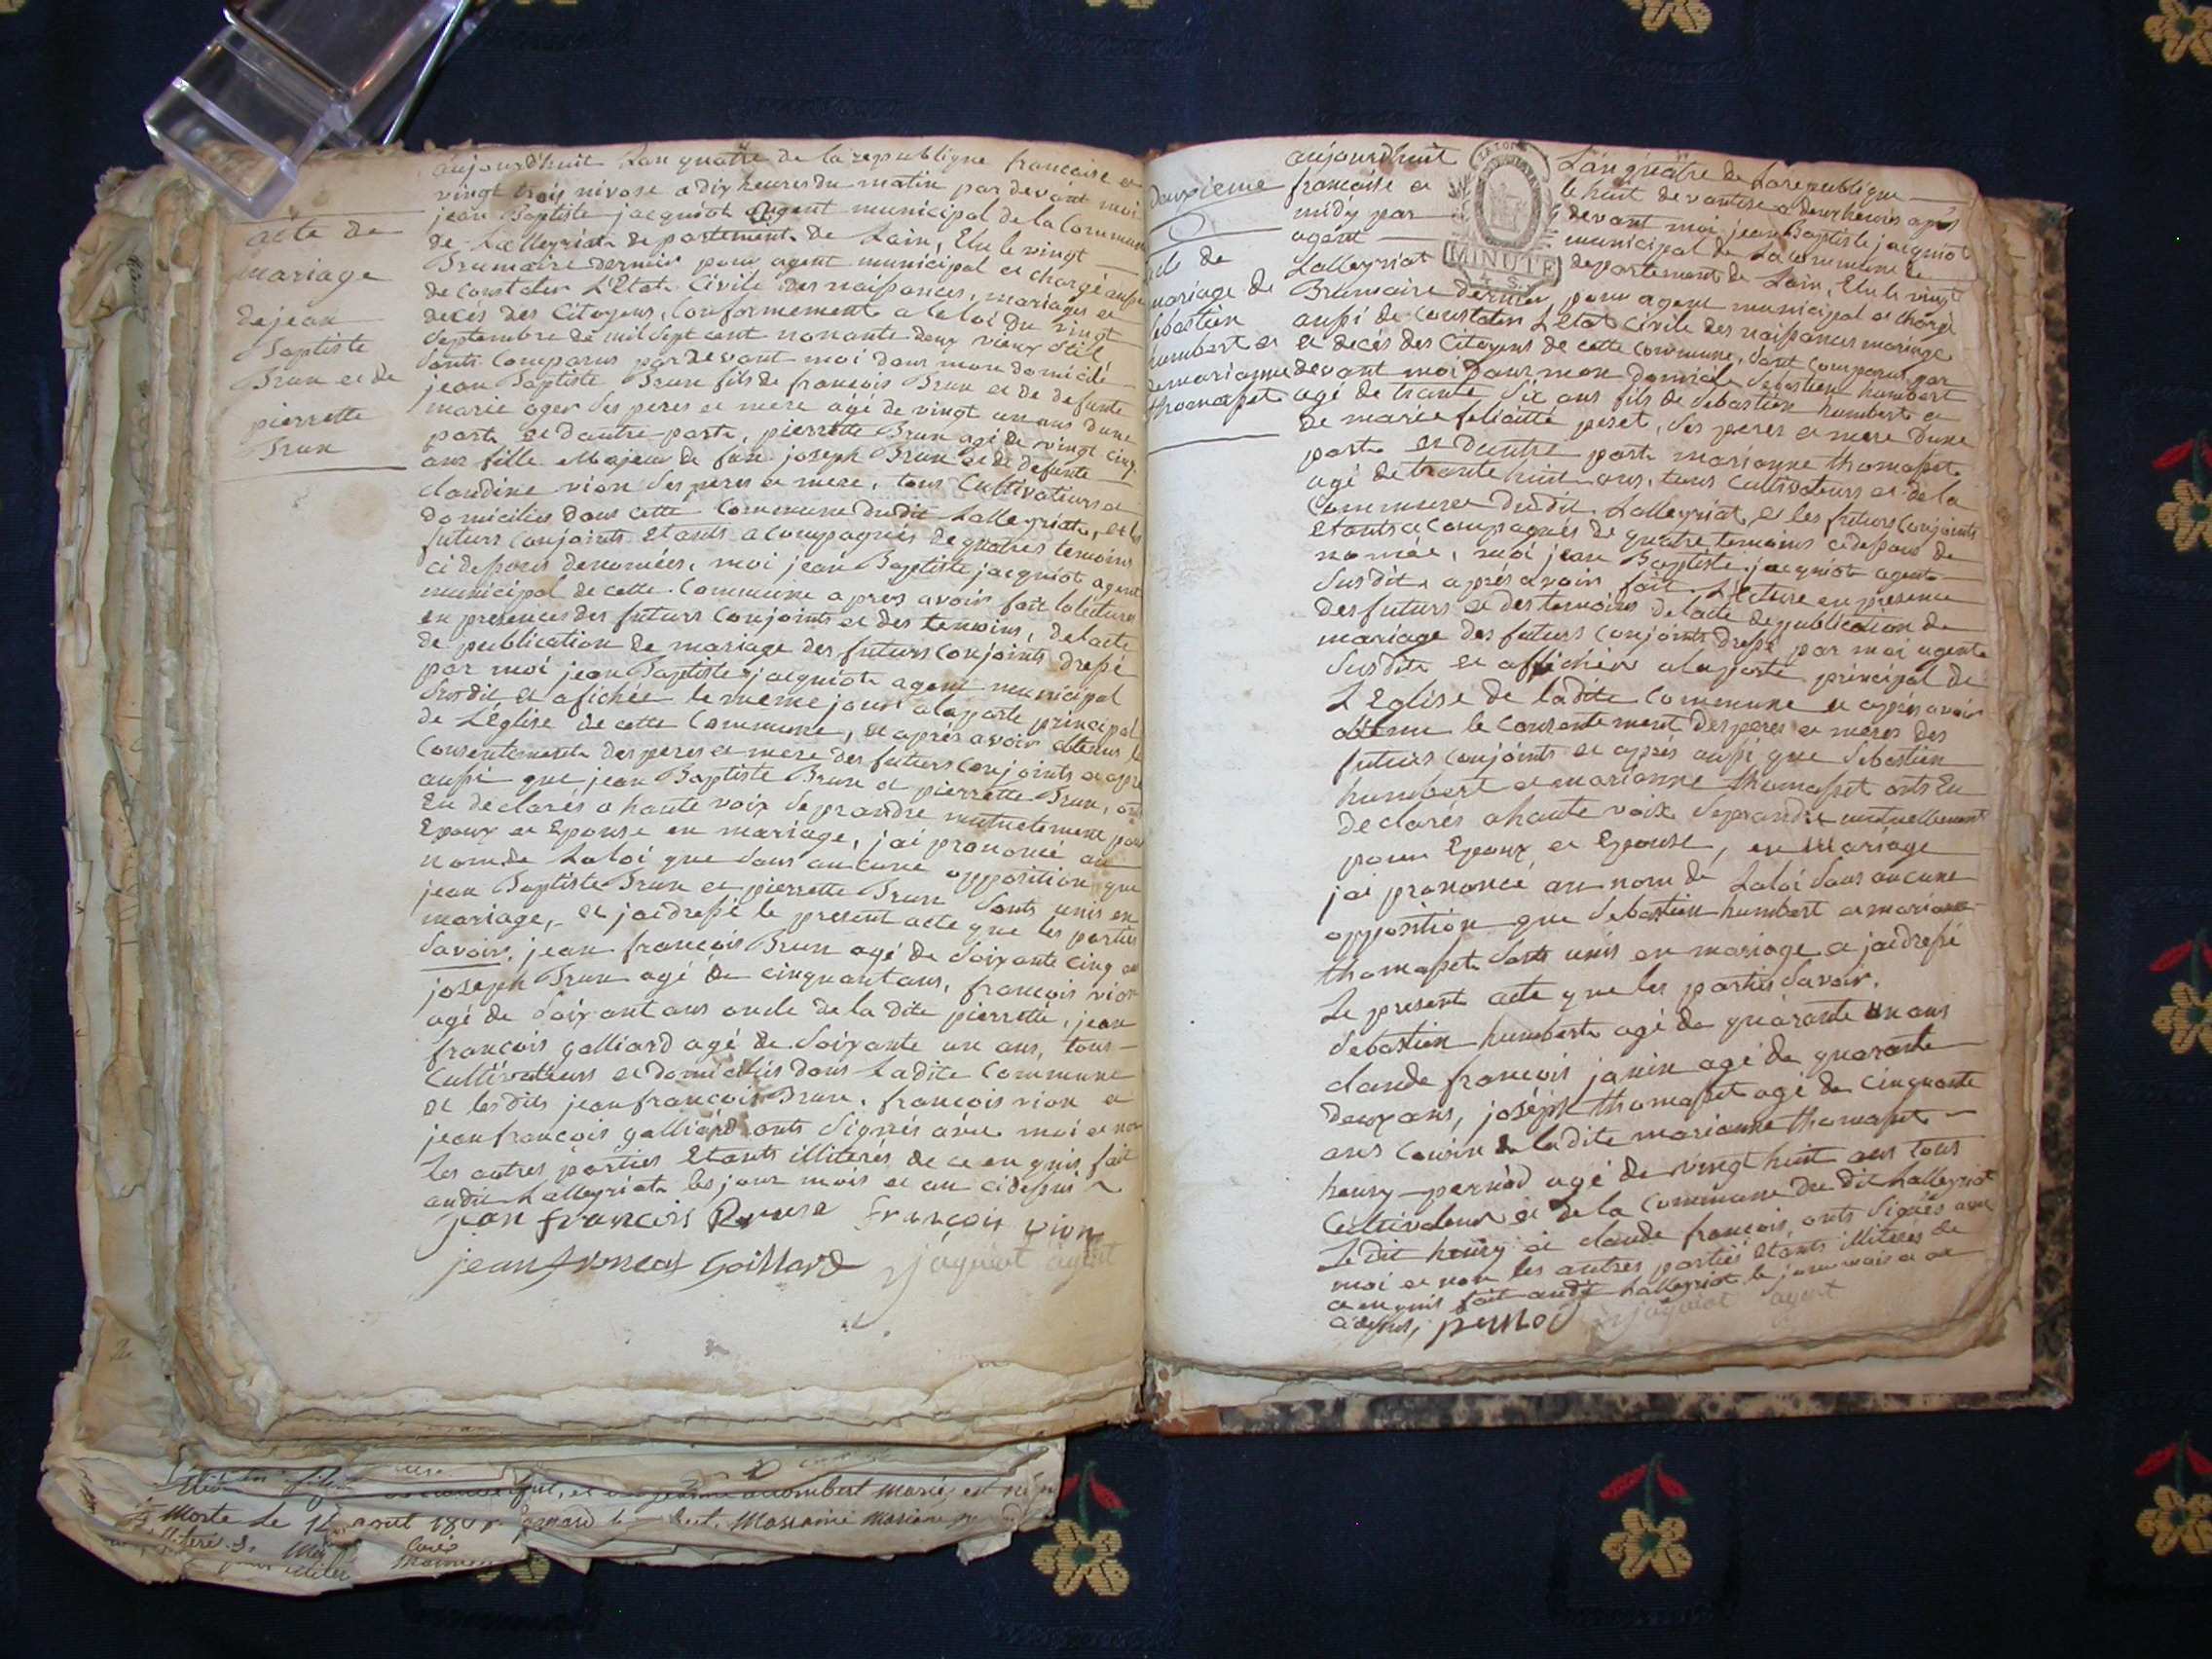 acte de
mariage
de jean
Baptiste
Brun et de
pierrette
Brun
aujourdhuit Lan quatre de la republique francaise et
vingt trois nivose a dix heures du matin par devant moi
jean Baptiste jacquiot agent municipal de la Commune
de Lalleyriat departement de Lain, Elu le vingt
Brumaire dernier pour agent municipal et chargé aussi
de Constater L'Etat Civile des naissances, mariages et
decés des Citoyens, Conformement a la loi du vingt
Septembre de mil Sept cent nonante deux vieux Stil,
Sonts Comparus par devant moi dans mon domicile
jean Baptiste Brun fils de francois Brun et de defunte
marie oger Ses peres et mere agé de vingt un ans dune
part et dautre part, pierrette Brun agé de vingt cinq
ans fille Majeur de feu joseph Brun et de defunte
claudine vion Ses peres et mere, tous Cultivateurs et
domiciliés dans cette Commune du dit Lalleyriat, et les
futurs Conjoints Etants acompagniés de quatres temoins
ci dessous denomées, moi jean Baptiste jacquiot agent
municipal de cette Commune apres avoir fait la lecture
en presences des futurs Conjoints et des temoins, de lacte
de publication de mariage des futurs Conjoints dressé
par moi jean Baptiste jacquiot agent municipal
Susdit et afichée le meme jour a la porte principal
de L'Eglise de cette Commune, et aprés avoir obtenus le
Consentement des peres et mere des futurs Conjoints et apre
aussi que jean Baptiste Brun et pierrette Brun, onts
Eu declarés a haute voix Seprandre mutuelement pour
Epoux et Epouse en mariage, jai prononcé au
nom de La loi que Sans aucune opposition que
jean Baptiste Brun et pierrette Brun Sonts unis en
mariage, et jai dressé le present acte que les parties
Savoir, jean francois Brun agé de Soixante cinq ans
joseph Brun agé de cinquant ans, francois vion
agé de Soixant ans oncle de la dite pierrette, jean
francois galliard agé de Soixante un ans, tous
Cultivateurs et domiciliés dans Ladite Commune
et lesdits jean francois Brun, francois vion et
jean francois galliard onts Signés avec moi et non
Les autres parties Etants illiterés de ce enquis fait
audit Lalleyriat les jour mois et an cidessus
jean francois Brune francois vion
jean francois Gaillard jaquiot agent
deuxieme
acte de
mariage de
sebastien
humbert et
demarianne
thomasset
aujourdhuit Lan quatre de La republique
francaise et le huit de vantose a deux heures aprés
midy par devant moi jean Baptiste jacquiot
agent municipal de La Commune de
Lalleyriat departement de Lain, Elu le vingt
MINUTE
Brumaire dernier pour agent municipal et chargé
aussi de Constater L'Etat Civile des naissances mariage
et decés des Citoyens de cette Commune, Sont Comparus par
devant moi dans mon domicile Sebastien humbert
agé de trante Six ans fils de Sebastien humbert et
de marie felicitté peret, Ses peres et mere dune
part et dautre part marianne thomasset
agé de trante huit ans, tous Cultivateurs et de la
Commune dudit Lalleyriat et les futurs Conjoints
Etants acompagnés de quatre temoins cidessous de
nomée, moi jean Baptiste jacquiot agent
Susdit aprés avoir fait Lecture en presence
des futurs et des temoins de lacte de publication de
mariage des futurs Conjoints dressé par moi agent
Susdit et affichér a la porte principal de
L'Eglise de ladite Commune et aprés avoir
obtenu le Consentement des peres et meres des
futurs Conjoints et aprés aussi que Sebastien
humbert et marianne thomasset onts Eu
declarés a haute voix Seprandre mutuellement
pour Epoux et Epouse, en Mariage
jai prononcé au nom de La loi Sans aucune
opposition que Sebastien humbert et marianne
thomasset Sonts unis en mariage et jai dressé
Le present acte que les parties Savoir.
Sebastien humbert agé de quarante un ans
claude francois janin agé de quarante
deux ans, joséph thomasset agé de cinquante
ans Cousin de ladite marianne thomasset
henry pernod agé de vingt huit ans tous
Cultivateur et de la Commune du dit Lalleyriat
Le dit henry et claude francois onts Signés avec
moi et non les autres parties Etants illiterés de
ce enquis fait audit Lalleyriat le jour mois et an
cidessus, pernod jaquiot agent
Morte Le